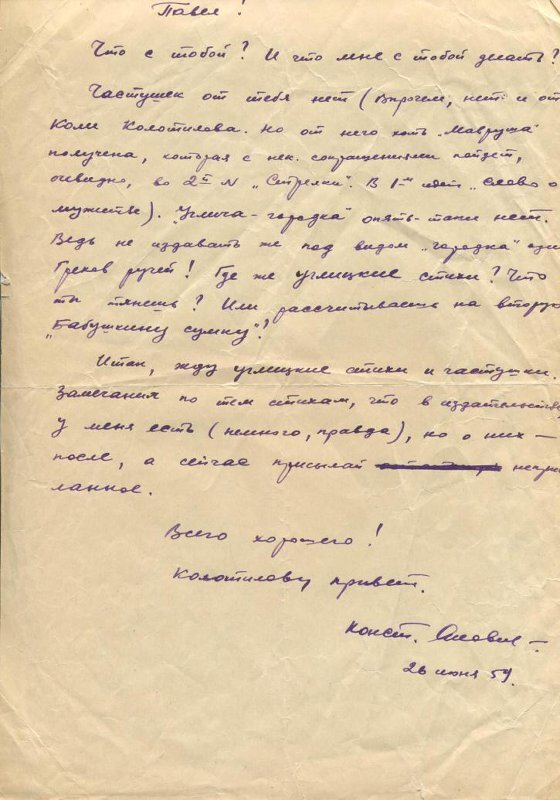 Павел!
Что с тобой? И что мне с тобой делать?
Частушек от тебя нет (впрочем, нет и от
Коли Колотилова. Но от него хоть „Мавруша"
получена, которая с нек. сокращениями пойдет,
очевидно, во 2й N „Стрелки". В 1-м идет „Слово о
мужестве). „Углича-городка" опять-таки нет.
Ведь не издавать же под видом „городка" один
Грехов ручей! Где же углицкие стихи? Что
ты тянешь? Или рассчитываешь на вторую
„Бабушкину сумку"?
Итак, жду углицкие стихи и частушки.
Замечания по тем стихам, что в издательстве,
у меня есть (немного, правда), но о них —
после, а сейчас присылай
ланное.
Всего хорошего!
Колотилову привет.
Конст.
26 июня 59.